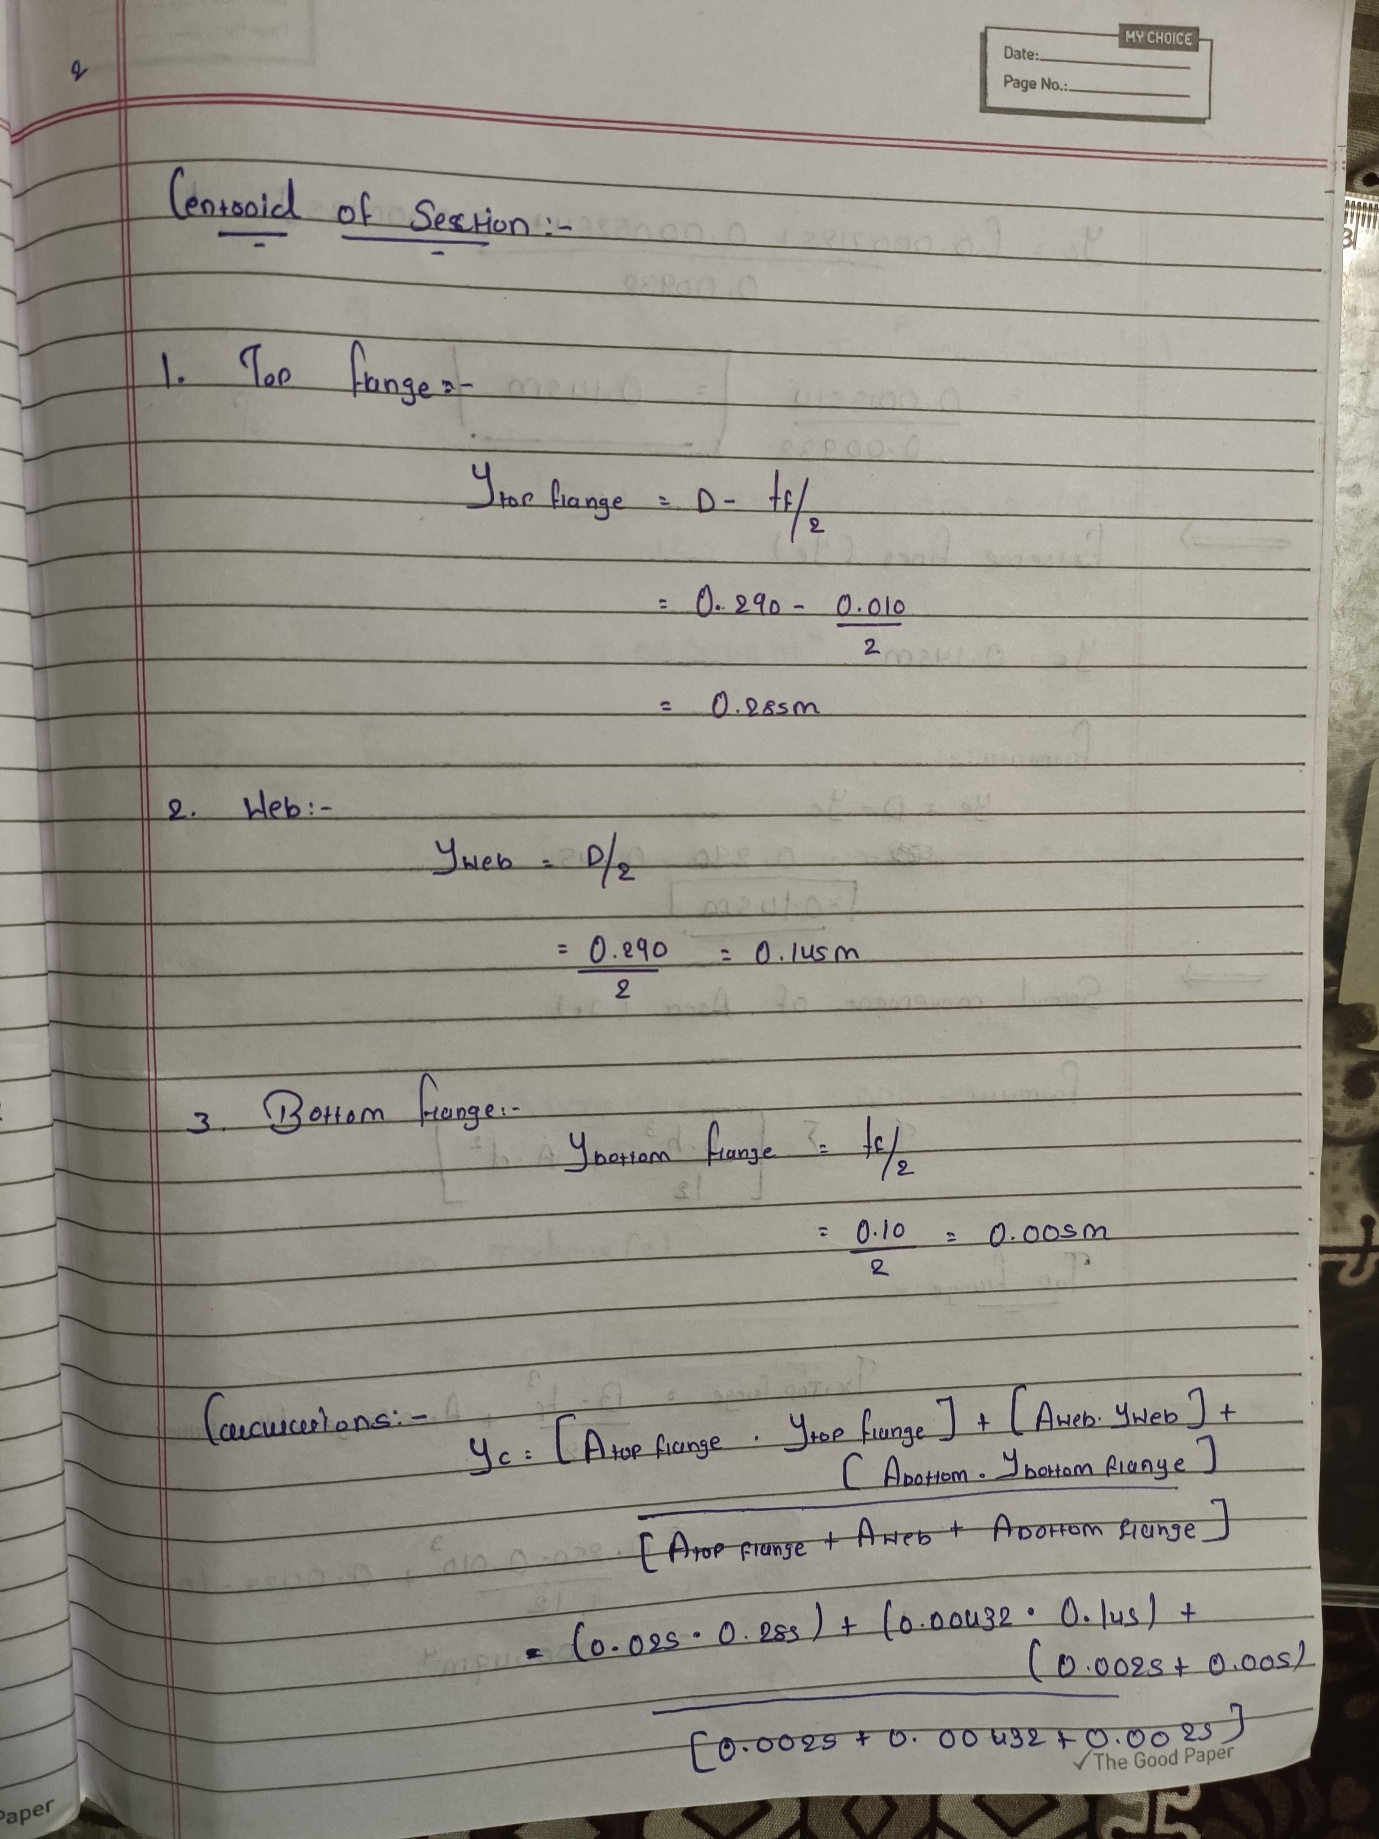 2
MY CHOICE
Date:
Page No.:
Centroid of Section :-
1. Top flange :-
y top flange = D - tf/2
= 0.290 - 0.010/2
= 0.285m
2. Web :-
y web = D/2
= 0.290/2 = 0.145m
3. Bottom flange :-
y bottom flange = tf/2
= 0.10/2 = 0.005m
Calculations :-
yc = [A top flange . y top flange] + [A web . y web] +
[A bottom . y bottom flange]
[A top flange + A web + A bottom flange]
= (0.025 . 0.285) + (0.00432 . 0.145) +
(0.0025 + 0.005)
[0.0025 + 0.00432 + 0.0025]
✓The Good Paper
Paper